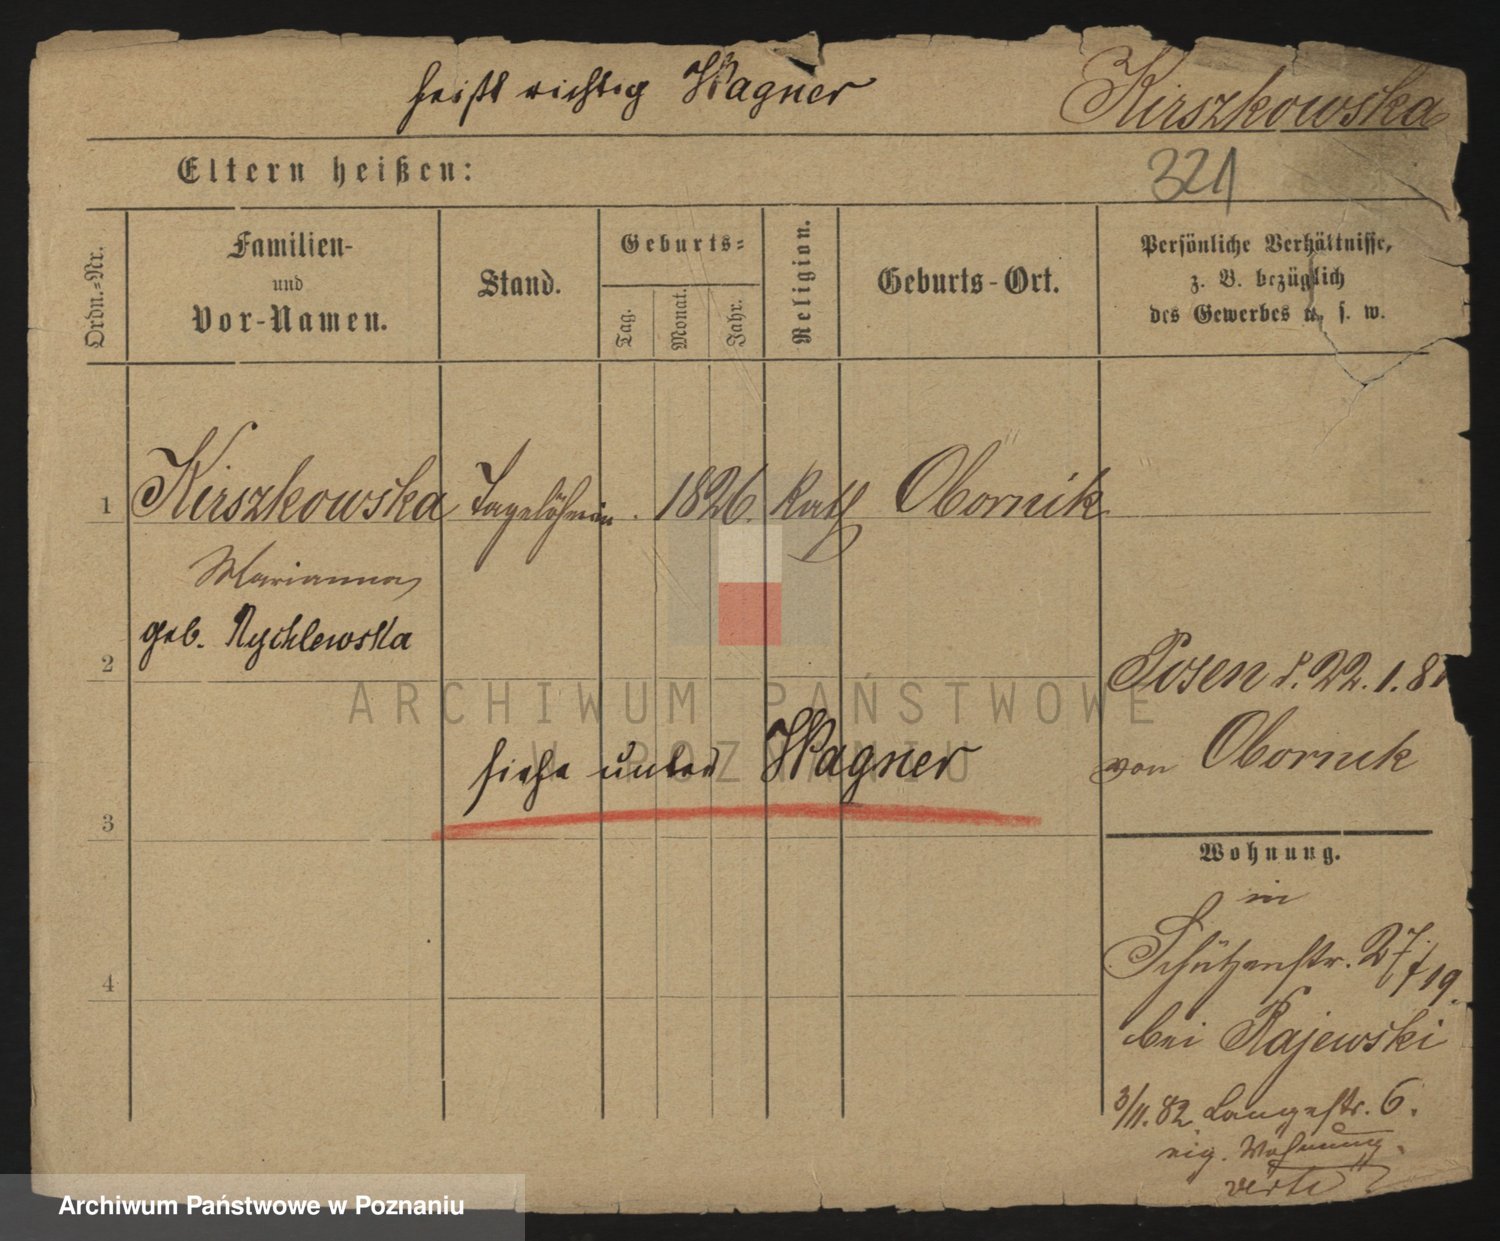 heißt richtig Wagner
Kirszkowska
Eltern heißen:
321
Ordn.-Nr.
Familien-
und
Vor-Namen.
Stand.
Geburts-
Tag.
Monat.
Jahr.
Religion.
Geburts-Ort.
Persönliche Verhältnisse,
z. B. bezüglich
des Gewerbes u. s. w.
1 Kirszkowska Tagelöhnerin. 1826. Kath Obornik
Marianna
geb. Rychlewska
2
Posen d. 22. 1. 8
von Obornik
siehe unter Wagner
3
Wohnung.
in
Schützenstr. 27/19.
bei Rajewski
4
3/11. 82 Langestr. 6.
eig. Wohnung.
verte
ARCHIWUM PAŃSTWOWE
W POZNANIU
Archiwum Państwowe w Poznaniu